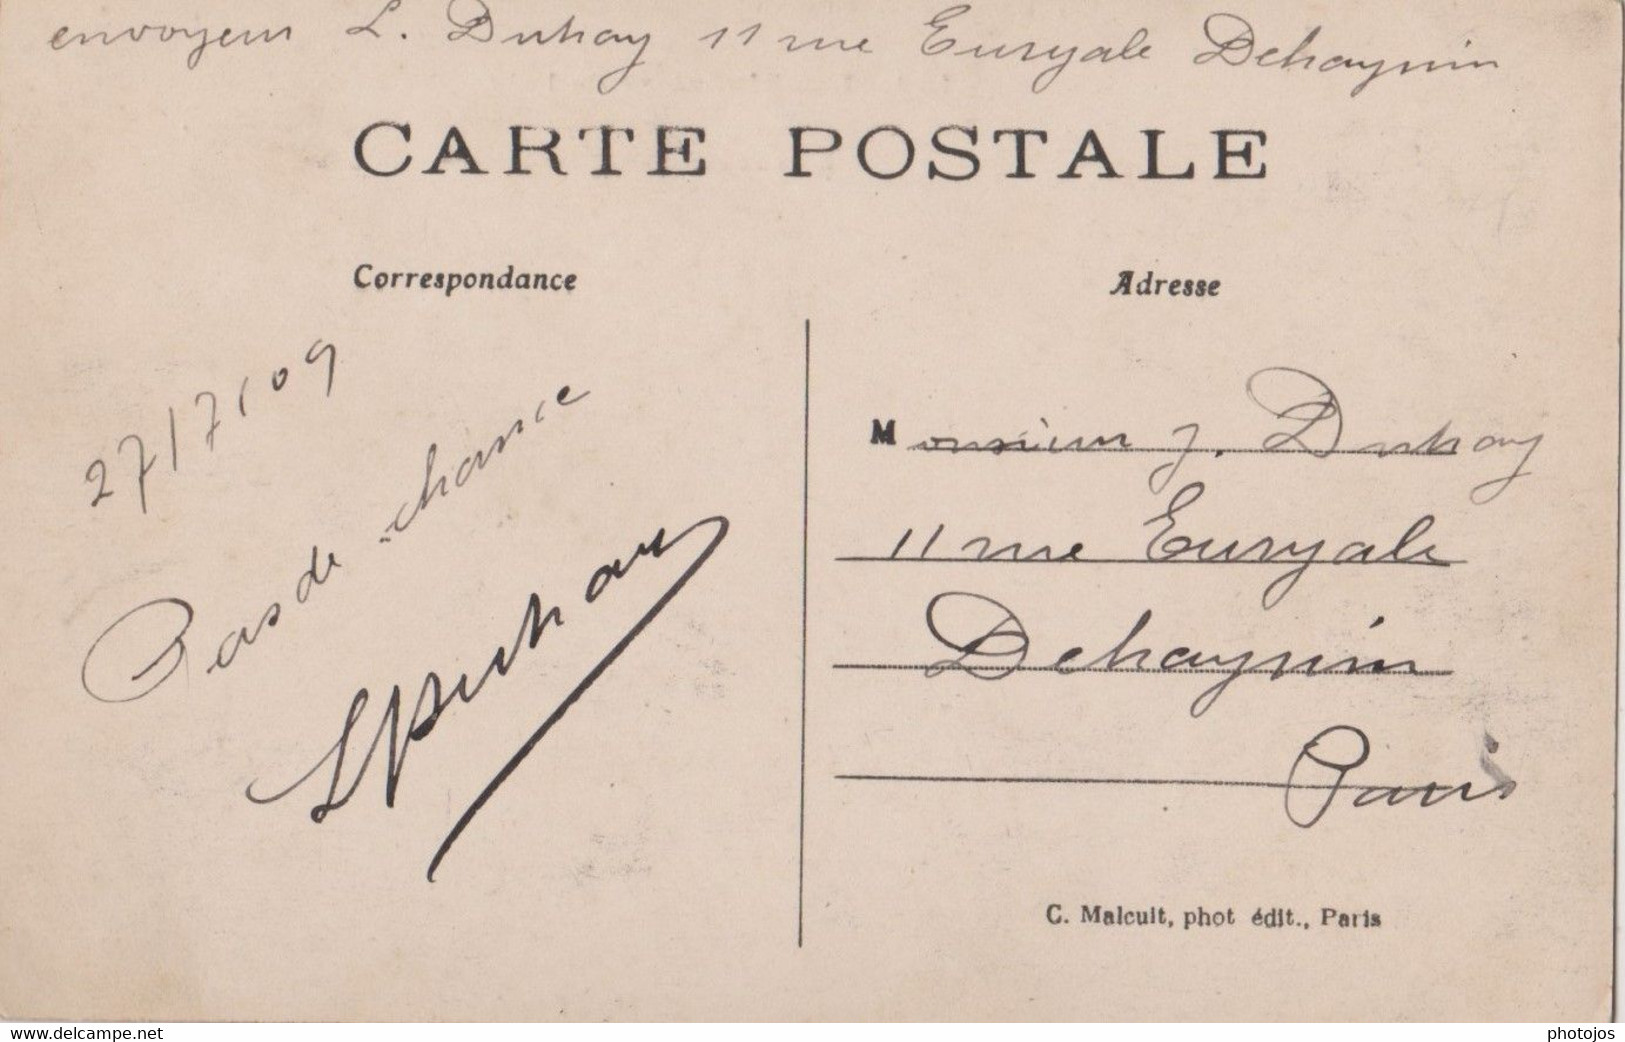 envoyeur L. Duhay 11 rue Euryale Dehaynin
CARTE POSTALE
Correspondance
27/7/09
Pas de chance
LDuhay
Adresse
Monsieur J. Duhay
11 rue Euryale
Dehaynin
Paris
C. Malcuit, phot édit., Paris
www.delcampe.net
photojos